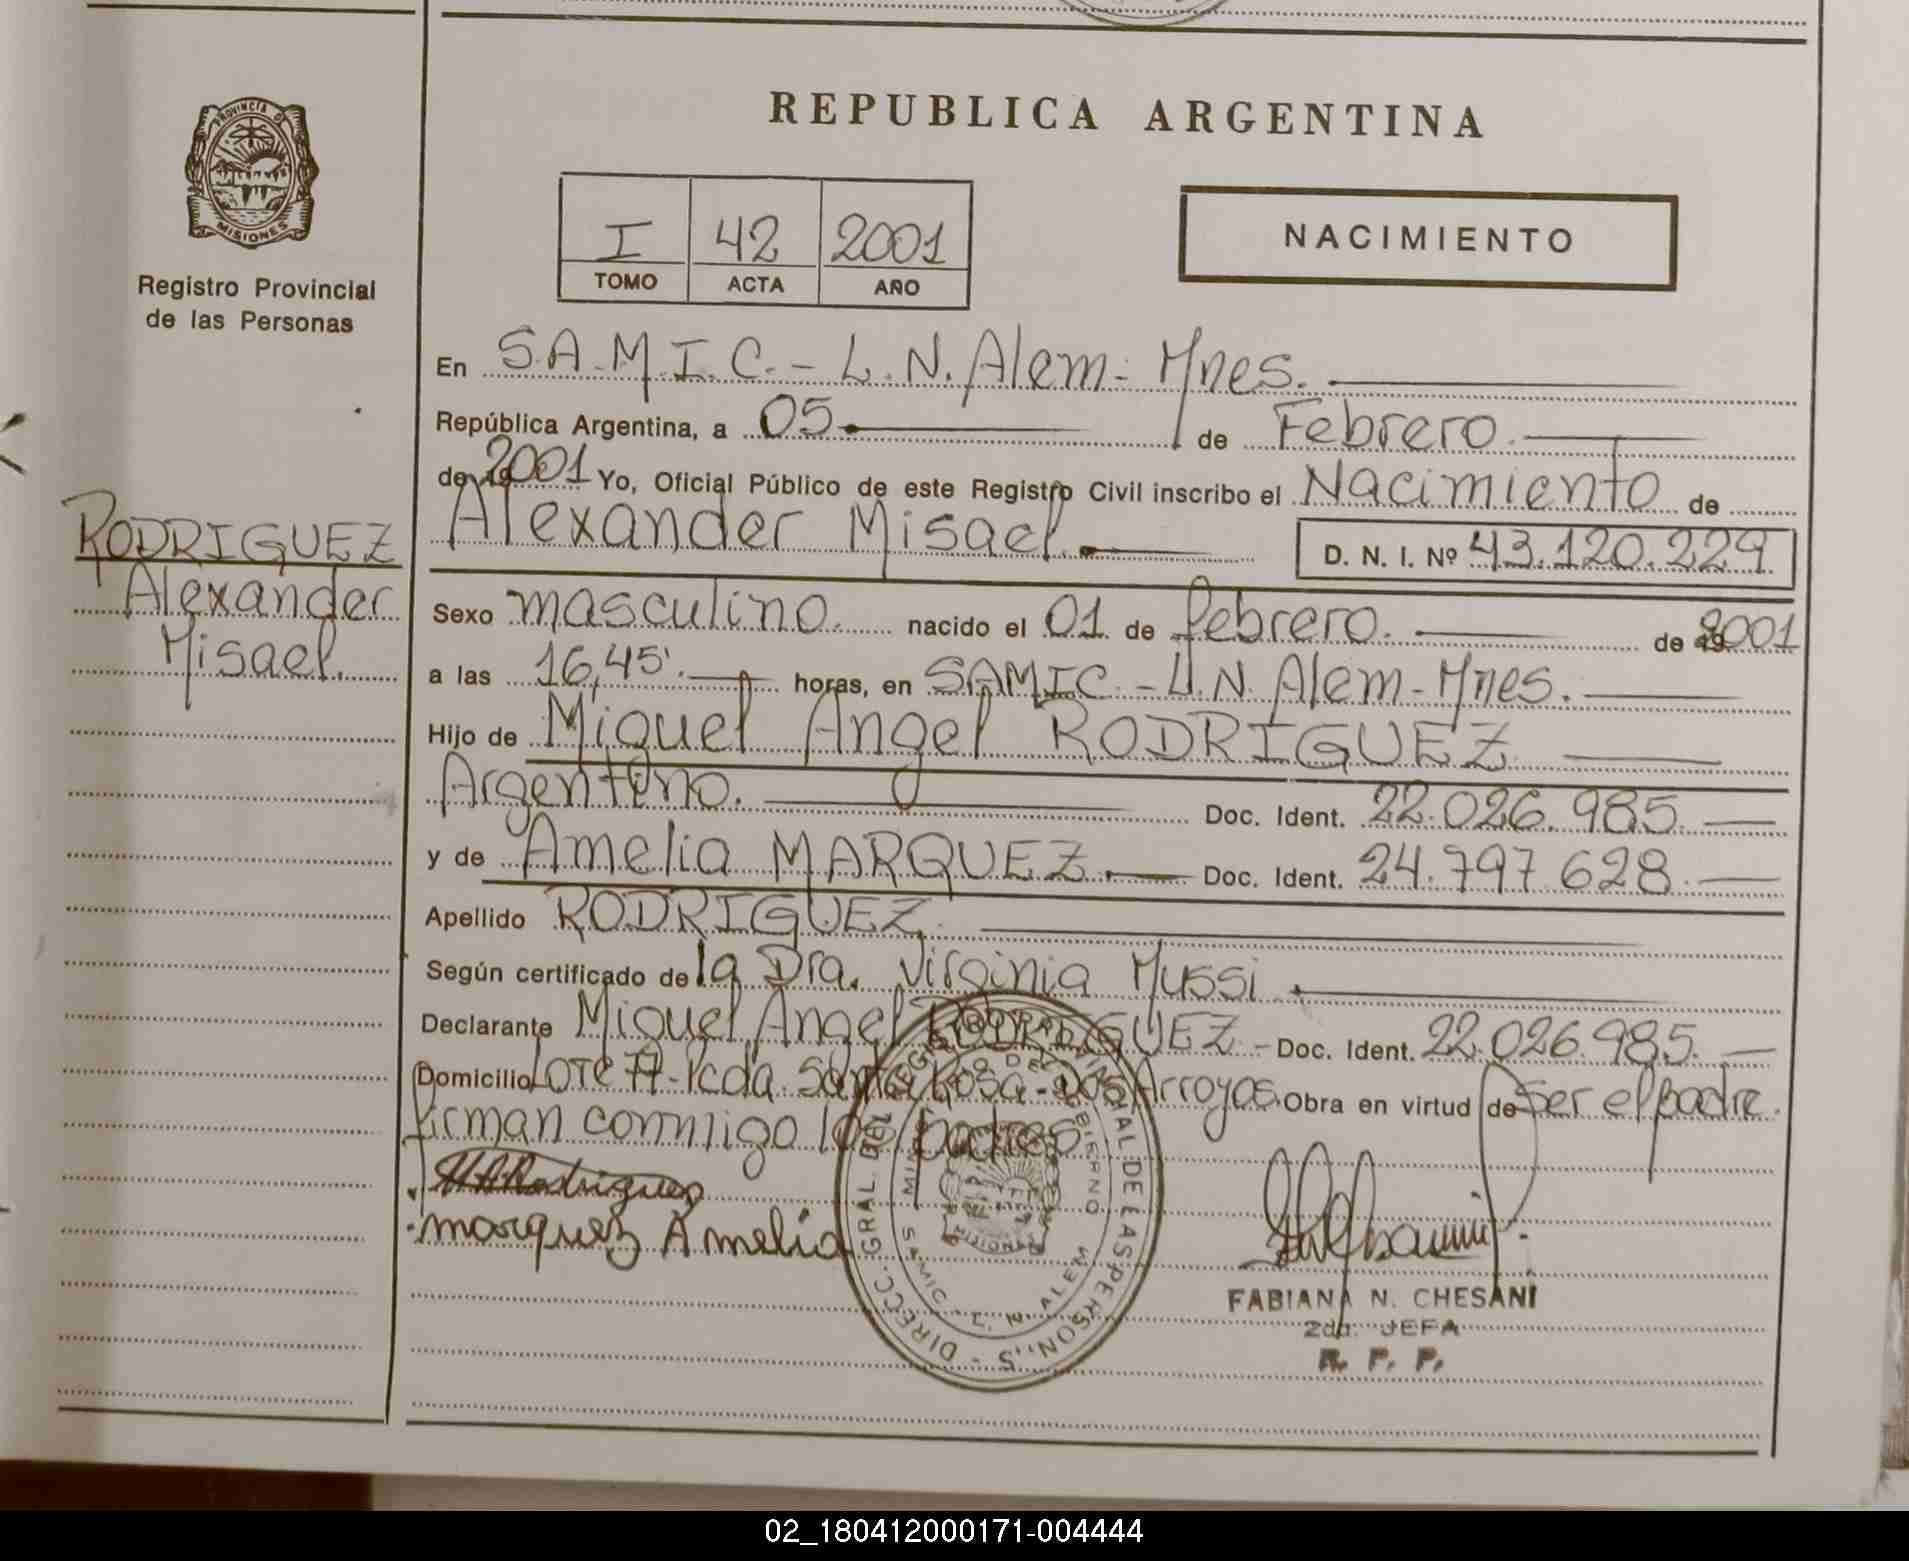 REPUBLICA ARGENTINA
PROVINCIA D
MISIONES
Registro Provincial
de las Personas
I 42 2001
TOMO ACTA AÑO
NACIMIENTO
En S.A.M.I.C. - L.N. Alem - Mnes.
República Argentina, a 05 de Febrero.
de 19 2001 Yo, Oficial Público de este Registro Civil inscribo el Nacimiento de
Alexander Misael. D. N. I. Nº 43.120.229
RODRIGUEZ
Alexander
Misael.
Sexo masculino. nacido el 01 de febrero. de 19 2001
a las 16,45' horas, en SAMIC. - L.N. Alem - Mnes.
Hijo de Miguel Angel RODRIGUEZ
Argentino. Doc. Ident. 22.026.985.
y de Amelia MARQUEZ. Doc. Ident. 24.797.628.
Apellido RODRIGUEZ.
Según certificado de la Dra. Virginia Mussi.
Declarante Miguel Angel RODRIGUEZ - Doc. Ident. 22.026.985.
Domicilio LOTE 77 - Pcda. Santa Rosa - Dos Arroyos. Obra en virtud de Ser el padre.
firman conmigo los padres
M A Rodriguez
marquez Amelia
DIRECC. GRAL DEL REGISTRO PROVINCIAL DE LAS PERSONAS
GOBIERNO
SAMIC - L. N. ALEM
MISIONES
FABIANA N. CHESANI
2da. JEFA
R. P. P.
02_180412000171-004444